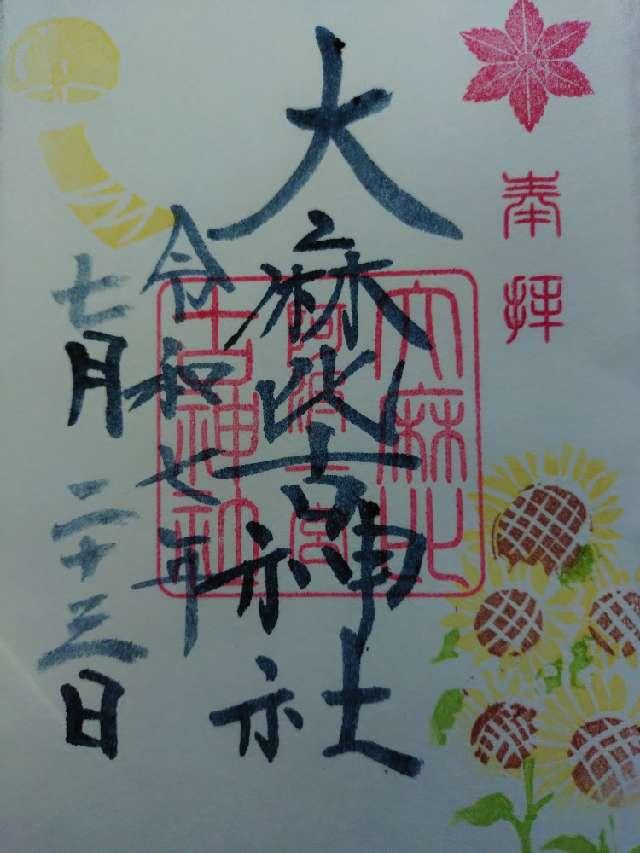 奉拝
大麻比古神社
令和七年
七月二十三日
大麻比